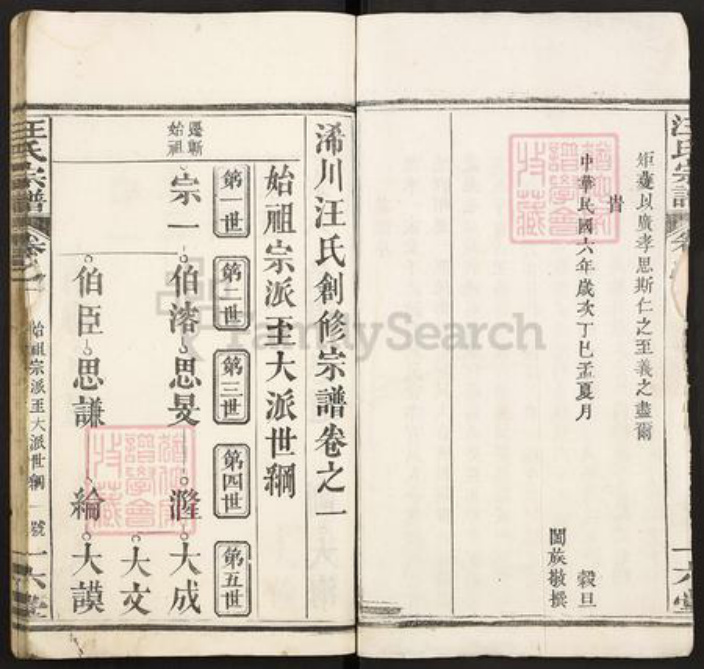 汪氏宗譜
矩薆以廣孝思斯仁之至義之盡爾
旹
中華民國六年歲次丁巳孟夏月
穀旦
闔族敬撰
浠川汪氏創修宗譜卷之一
始祖宗派至大派世綱
第一世
第二世
第三世
第四世
第五世
遷蘄
始祖
宗一
伯溶
思旻
瀣
大成
大文
伯臣
思謙
綸
大謨
汪氏宗譜
卷之一
始祖宗派至大派世綱
一號
一六堂
FamilySearch